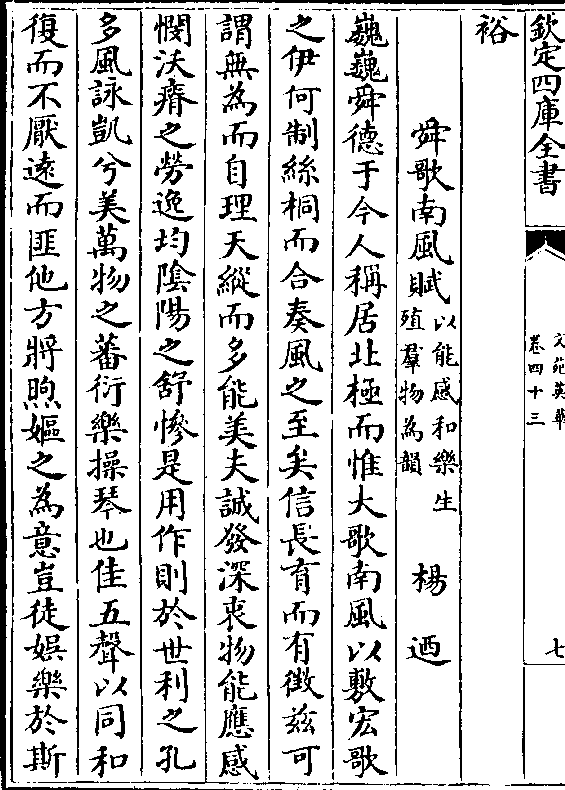 欽定四庫全書
文苑英華
卷四十三
七
裕
舜歌南風賦
以能感和樂生
殖羣物為韻
楊迺
巍巍舜德于今人稱居北極而惟大歌南風以敷宏歌
之伊何制絲桐而合奏風之至矣信長育而有徴兹可
謂無為而自理天縱而多能美夫誠發深衷物能應感
憫沃瘠之勞逸均隂陽之舒慘是用作則於世利之孔
多風詠凱兮美萬物之蕃衍樂操琴也佳五聲以同和
復而不厭遠而匪他方將煦嫗之為意豈徒娯樂於斯